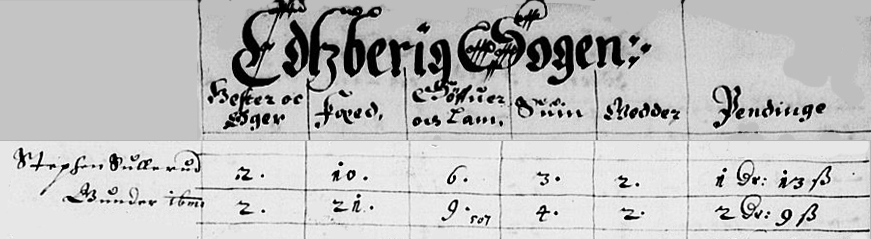 Edtzberig Sogen:
Hester oc Øger Fæed, Søffuer och Lam. Suin Bedder Pendinge
Stephen Sullerud 2. 10. 6. 3. 2. 1 Dr: 13 ß
Gunder ibm 2. 21. 9. 507 4. 2. 2 Dr: 9 ß